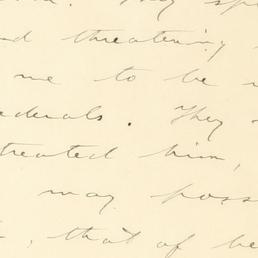 They sp
nd threatening
me to be
ederals. They
treated him,
may poss
, that of be